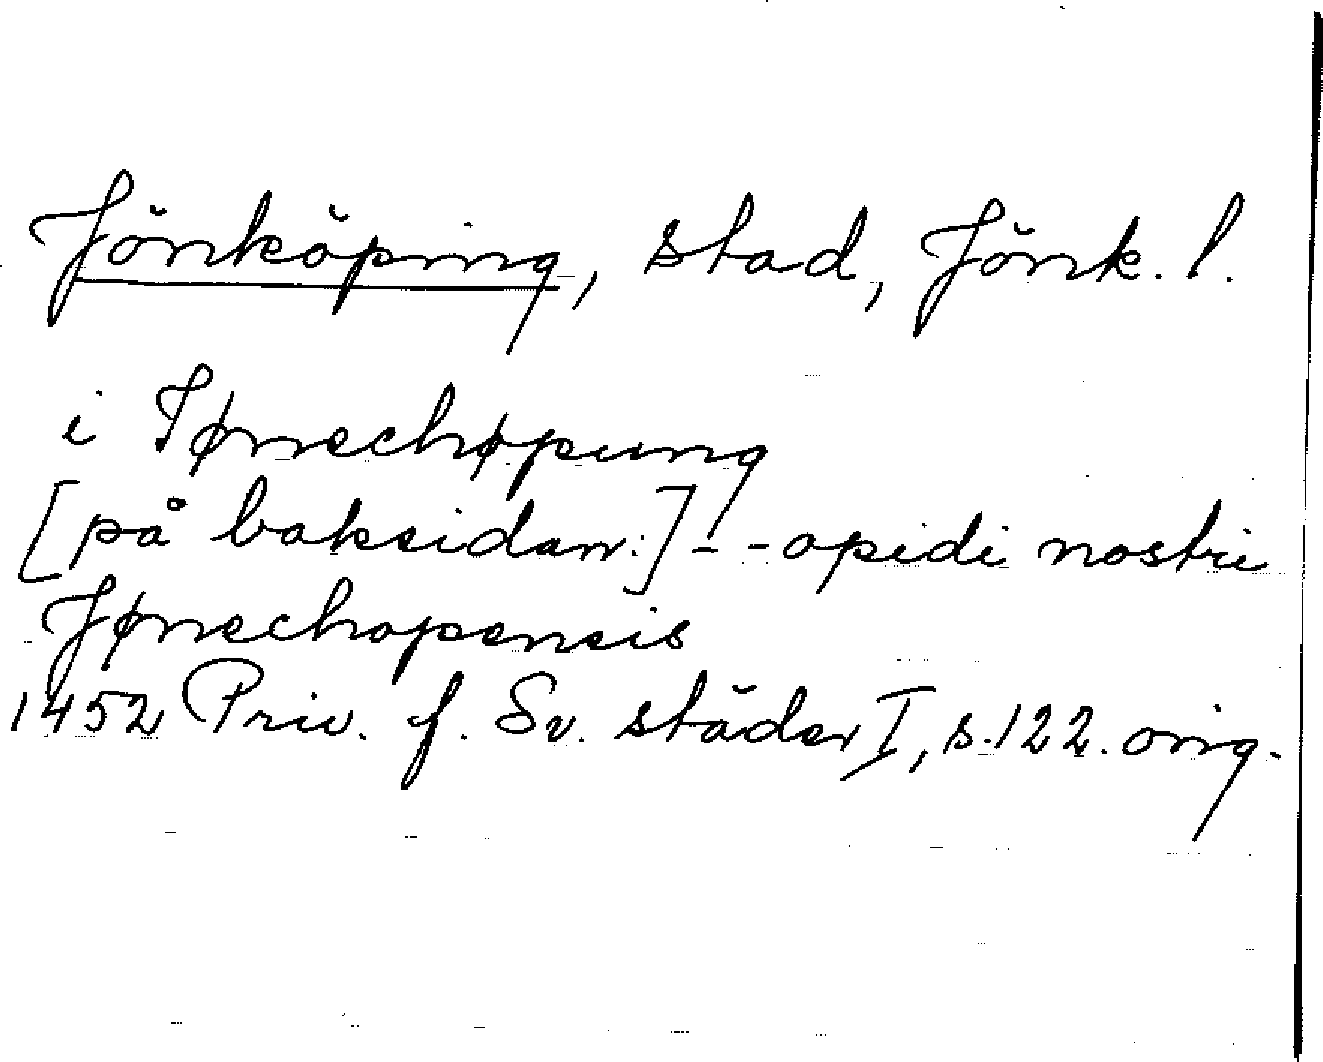 Jönköping, stad, Jönk. l.
i Jønechøpung
[på baksidan:] - - opidi nostri
Jønechopensis
1452 Priv. f. Sv. städer I, s. 122. orig.